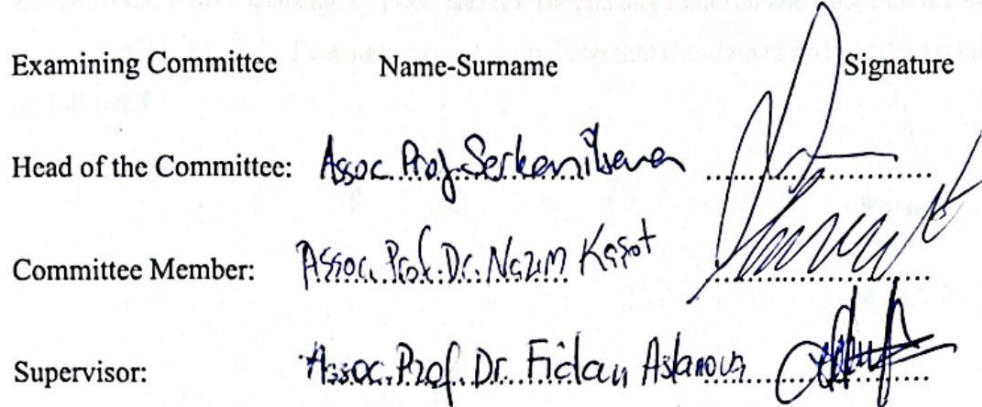 Examining Committee Name-Surname Signature
Head of the Committee: Assoc. Prof. Serkan
Committee Member: Assoc. Prof. Dr. Nazım Kaşot
Supervisor: Assoc. Prof. Dr. Fidan Aslanova